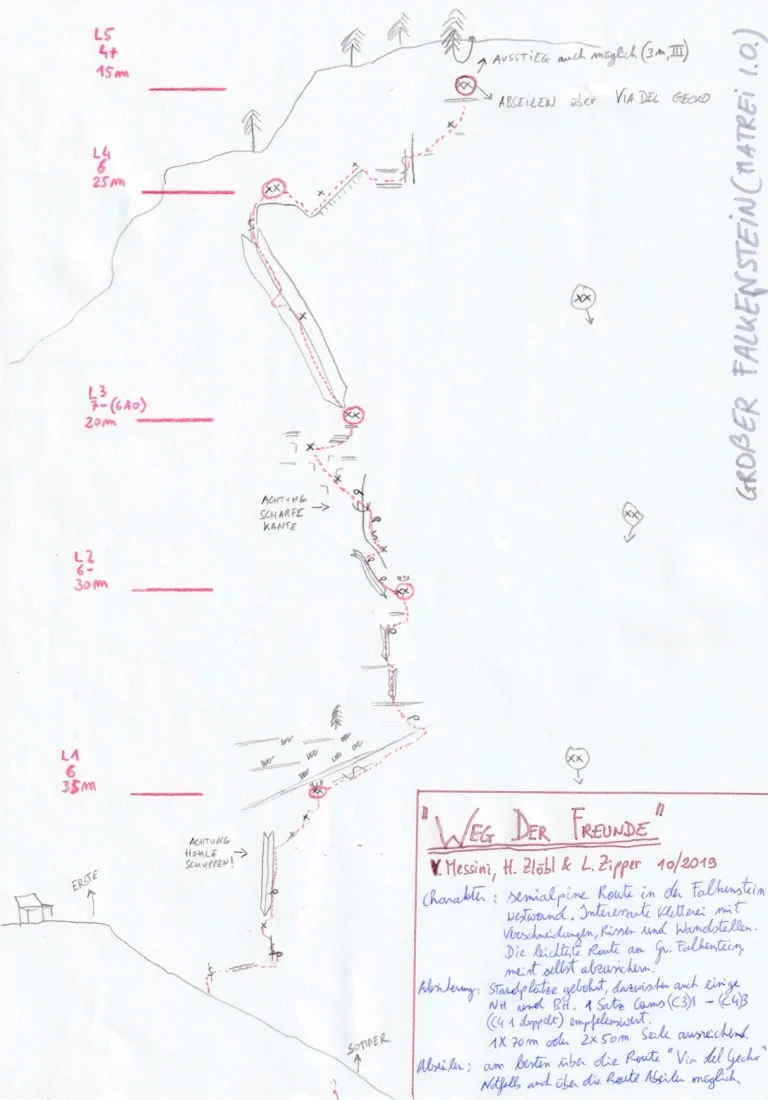 L5
4+
15m
AUSSTIEG auch möglich (3m, III)
ABSEILEN über VIA DEL GECKO
L4
6
25m
GROßER FALKENSTEIN (MATREI I.O.)
L3
7-(6A0)
20m
ACHTUNG
SCHARFE
KANTE
L2
6-
30m
L1
6
35m
ACHTUNG
HOHLE
SCHUPPEN!
ERSTE
SOMMER
"WEG DER FREUNDE"
V. Messini, H. Zlöbl & L. Zipper 10/2019
Charakter: semialpine Route in der Falkenstein
Westwand. Interessante Kletterei mit
Verschneidungen, Rissen und Wandstellen.
Die leichteste Route am Gr. Falkenstein,
meist selbst abzusichern.
Absicherung: Standplätze gebohrt, dazwischen auch einige
NH und BH. 1 Satz Cams (C3)1 - (C4)3
(C4 1 doppelt) empfelenswert.
1x70m oder 2x50m Seile ausreichend.
Abseilen: am besten über die Route "Via del Gecko"
Notfalls auch über die Route Abseilen möglich.